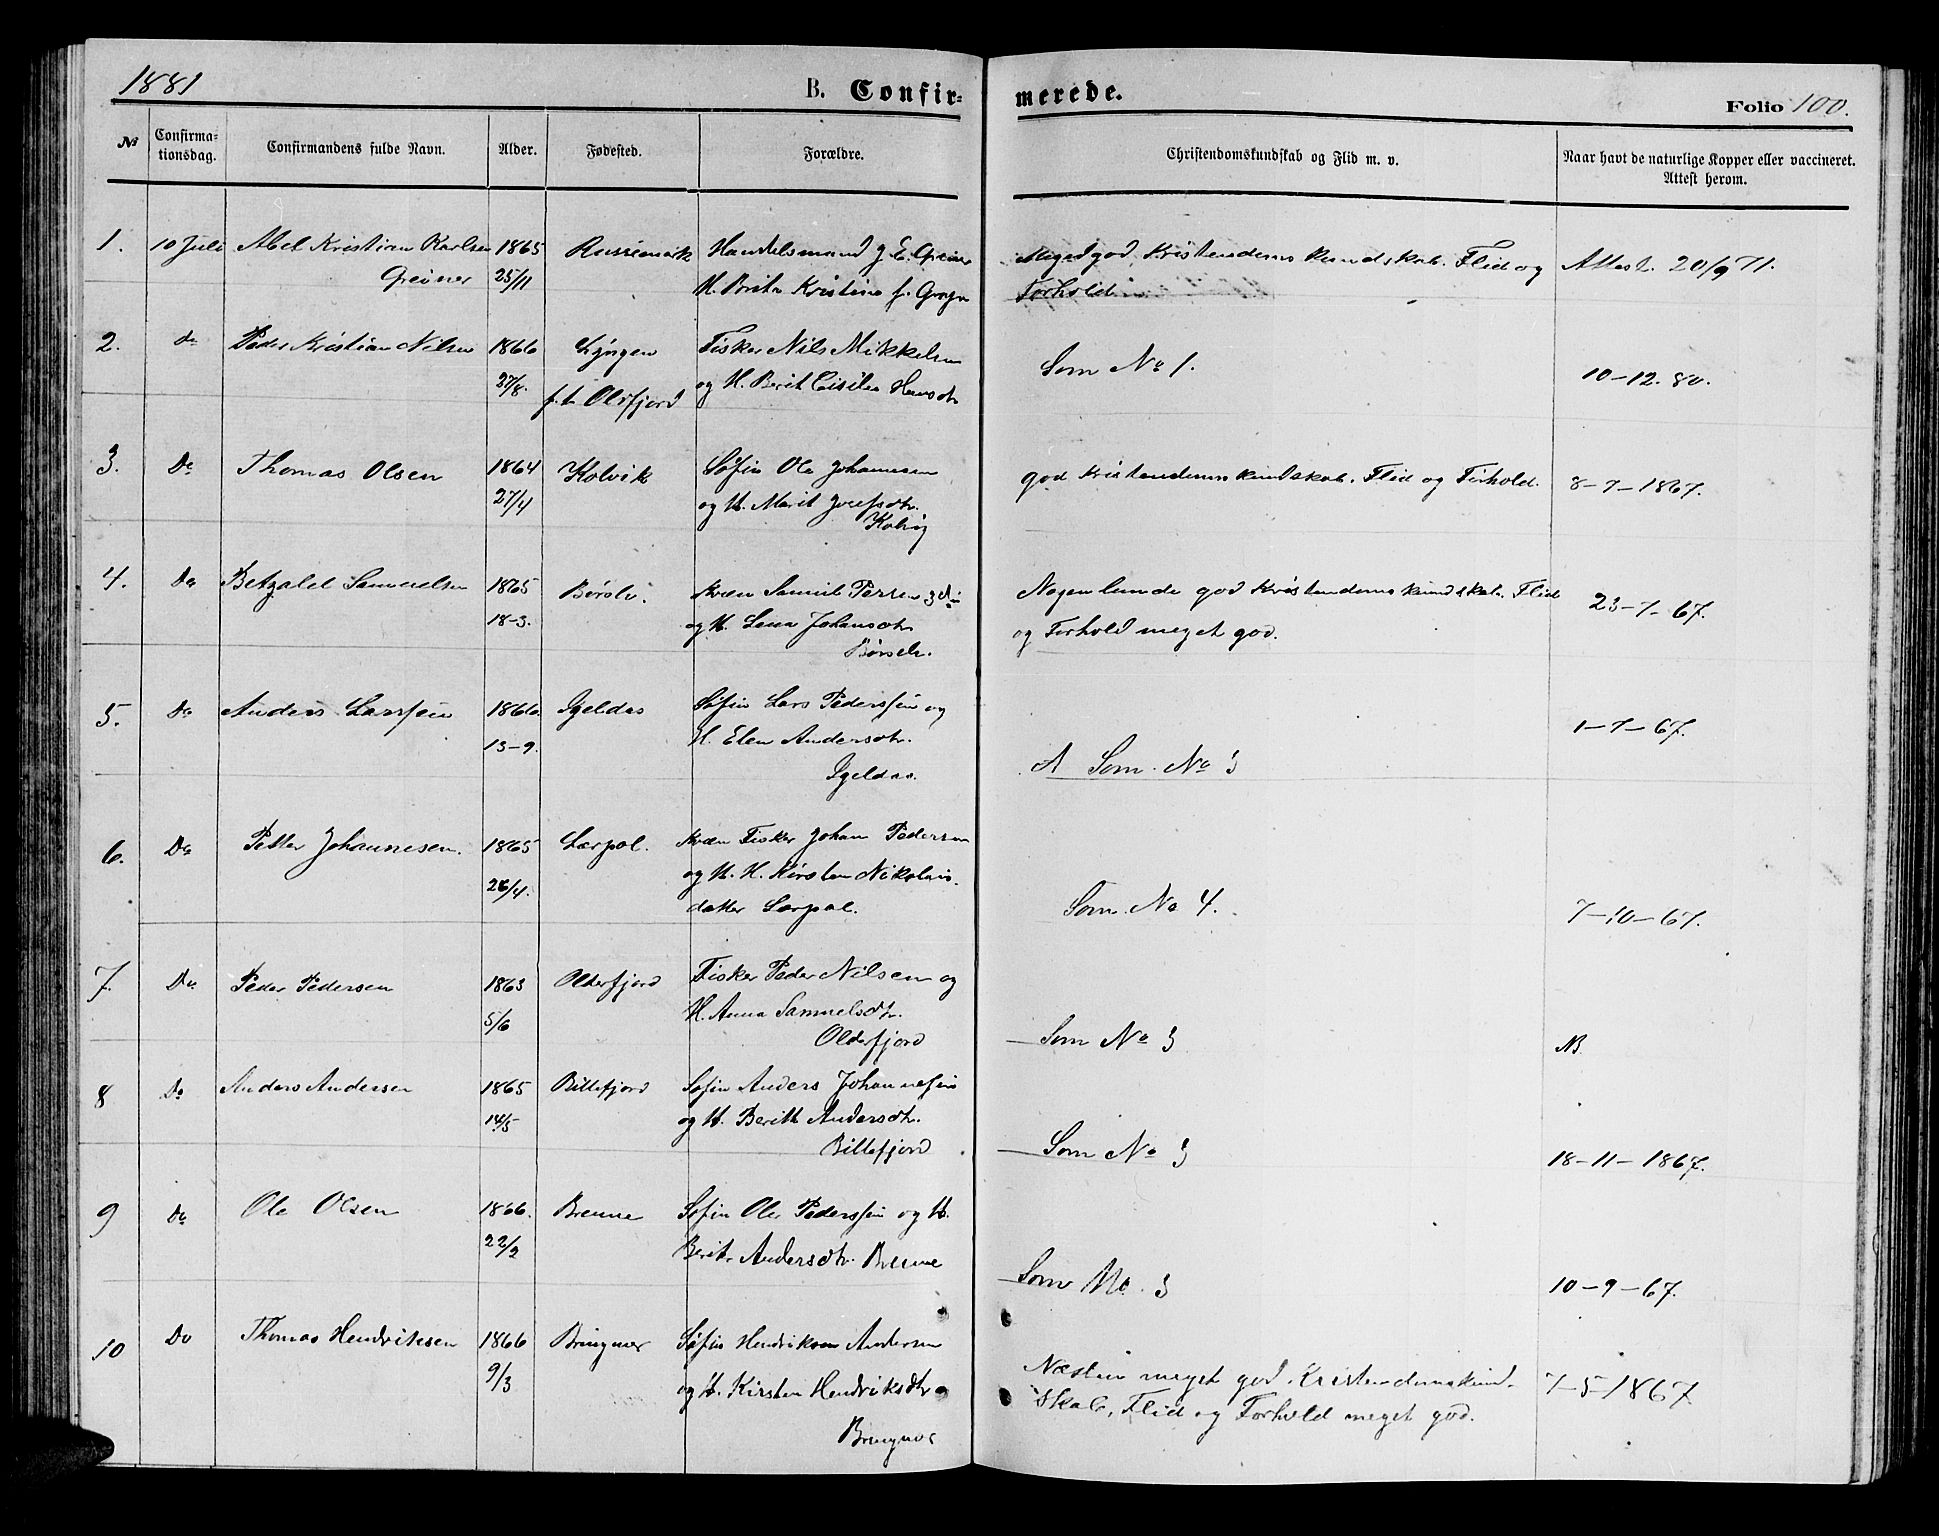 1881 B. Confirmerede. Folio 100.
№ Confirmationsdag. Confirmandens fulde Navn. Alder. Fødested. Forældre. Christendomskundskab og Flid m. v. Naar havt de naturlige Kopper eller vaccineret. Attest herom.
1. 10 Juli Abel Kristian Karlsen 1865 Handelsmand J. E. Greiner Meget god Kristendomskundskab. Flid og Attest. 20/9 71.
Greiner 25/11 H. Brita Kristine f. Forhold
2. do Peder Kristian Nilsen 1866 Lyngen Fisker Nils Mikkelsen Som No 1. 10-12. 80.
27/8. f. t. Oldfjord og H. Berit Cisilia Hansdtr
3. Do Thomas Olsen 1864 Kolvik Søfin Ole Johannesen god Kristendomskundskab. Flid og Forhold. 8-7-1867.
27/4 og H. Marit Josefsdtr.
Kolvig
4. Do Betzalel Samuelsen 1865 Børslv. Kvæn Samuel Persen Nogenlunde god Kristendomskundskab. Flid 23-7-67.
18-3. og H. Lena Johansdtr og Forhold meget god.
Børselv.
5. Do Anders Larssen 1866 Igeldas Søfin Lars Pederssen og 1-7-67.
13-9. H. Elen Andersdtr. Som No 3
Igeldas.
6. Do Petter Johannesen. 1865 Lærpol. Kvæn Fisker Johan Pedersen
26/4. og H. H. Kirsten Nikolais- Som No 4. 7-10-67.
datter Lærpol.
7. Do Peder Pedersen 1863 Olderfjord Fisker Peder Nilsen og
5/6 H. Anna Samuelsdtr. Som No 3
Olderfjord
8 Do Anders Andersen 1865 Billefjord Søfin Anders Johannesen
14/5 og H. Berith Andersdtr. Som No 3 18-11-1867.
Billefjord
9 Do Ole Olsen 1866. Brenne Søfin Ole Pederssen og H.
22/2 Berit Andersdtr. Brenne Som No. 3 10-9-67.
10 Do Thomas Hendriksen 1866 Bringnes Søfin Hendrik Andersen Næsten meget god. Kristendomskund- 7-5-1867
9/3 og H. Kirsten Hendriksdtr skab, Flid og Forhold meget god.
Bringnes